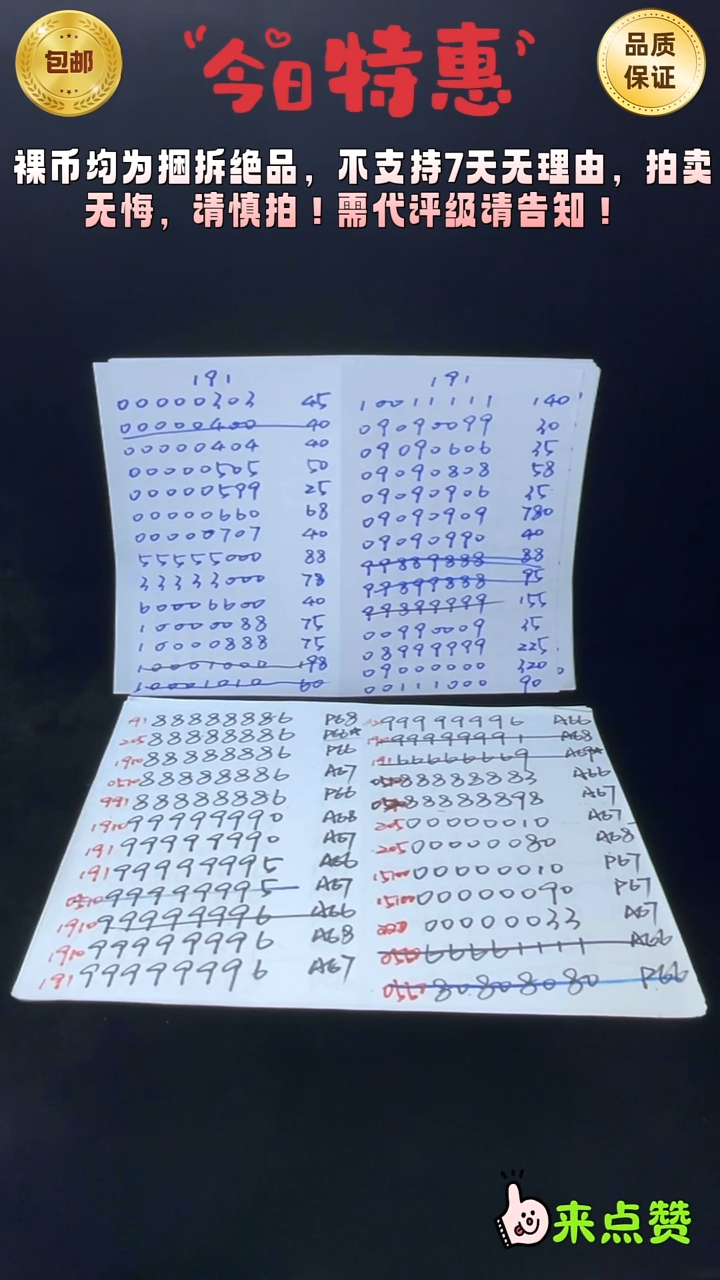 包邮
“今日特惠”
品质
保证
裸币均为捆拆绝品，不支持7天无理由，拍卖
无悔，请慎拍！需代评级请告知！
191
00000303 45
00000400 40
00000404 40
00000505 50
00000599 25
00000660 68
00000707 40
55555000 88
33333000 78
60006600 40
10000088 75
10000888 75
10001000 198
10001010 60
191
10011111 140
09090099 30
09090606 35
09090808 58
09090906 35
09090909 780
09090990 40
99889888 88
99899888 95
99899999 155
00990009 35
08999999 225
09000000 320
00111000 90
191 88888886 P68
205 88888886 P66★
1910 88888886 P66
0510 88888886 A67
991 88888886 P66
1910 99999990 A68
191 99999990 A67
191 99999995 A66
0510 99999995 A67
1910 99999996 A66
1910 99999996 A68
191 99999996 A67
99999996 A66
1910 99999991 A68
191 66666669 A69★
0510 88888883 A66
88888898 A67
205 00000010 A67
205 00000080 A68
1510 00000010 P67
1510 00000090 P67
00000033 A67
0510 66661111 A66
0510 80808080 P66
来点赞